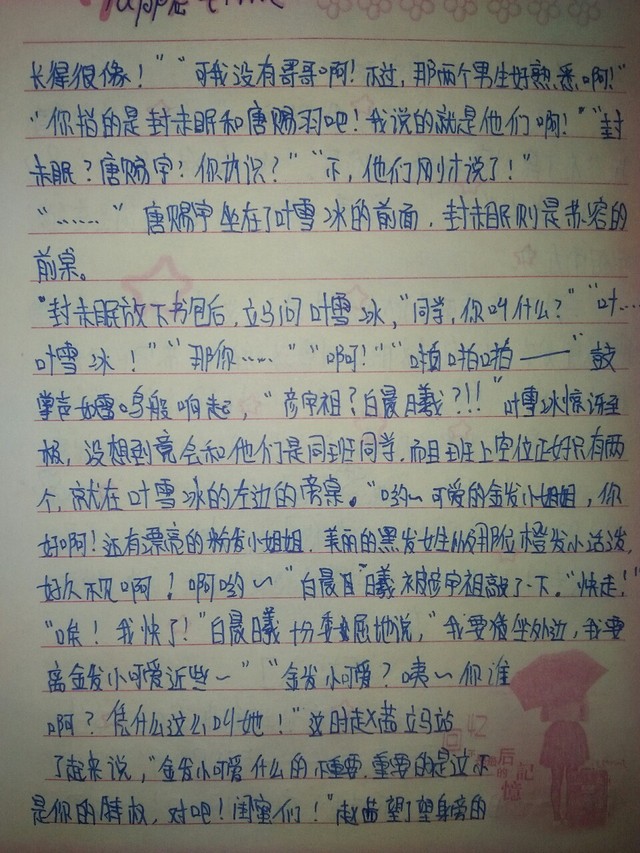 长得很像！”“可我没有哥哥啊！不过，那两个男生好熟悉啊！”
“你指的是封未眠和唐赐羽吧！我说的就是他们啊！”“封
未眠？唐赐宇？你认识？”“不，他们刚才说了！”
“……”唐赐宇坐在了叶雪冰的前面，封未眠则是苏容的
前桌。
“封未眠放下书包后，立马问叶雪冰，“同学，你叫什么？”“叶…
叶雪冰！”“那你……”“啊！”“啪啪啪——”鼓
掌声如雷鸣般响起，“彦宇祖？白晨曦？!!”叶雪冰惊讶至
极，没想到竟会和他们是同班同学，而且班上空位正好只有两
个，就在叶雪冰的左边的旁桌。“哟~可爱的金发小姐姐，你
好啊！还有漂亮的粉发小姐姐，美丽的黑发女生以及那位橙发小活泼，
好久不见啊！啊哟~”白晨曦被彦宇祖敲了一下。“快走！”
“唉！我快了！”白晨曦十分委屈地说，“我要坐外边，我要
离金发小可爱近些~”“金发小可爱？咦~你谁
啊？凭什么这么叫她！”这时赵茜立马站
了起来说，“金发小可爱什么的不重要，重要的是这不
是你的特权，对吧！闺蜜们！”赵茜望了望身旁的
后
的
記
憶